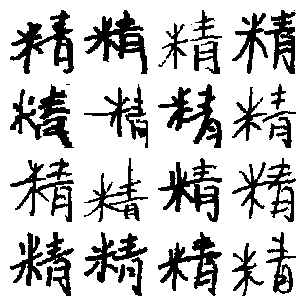 精精精精
精精精精
精精精精
精精精精